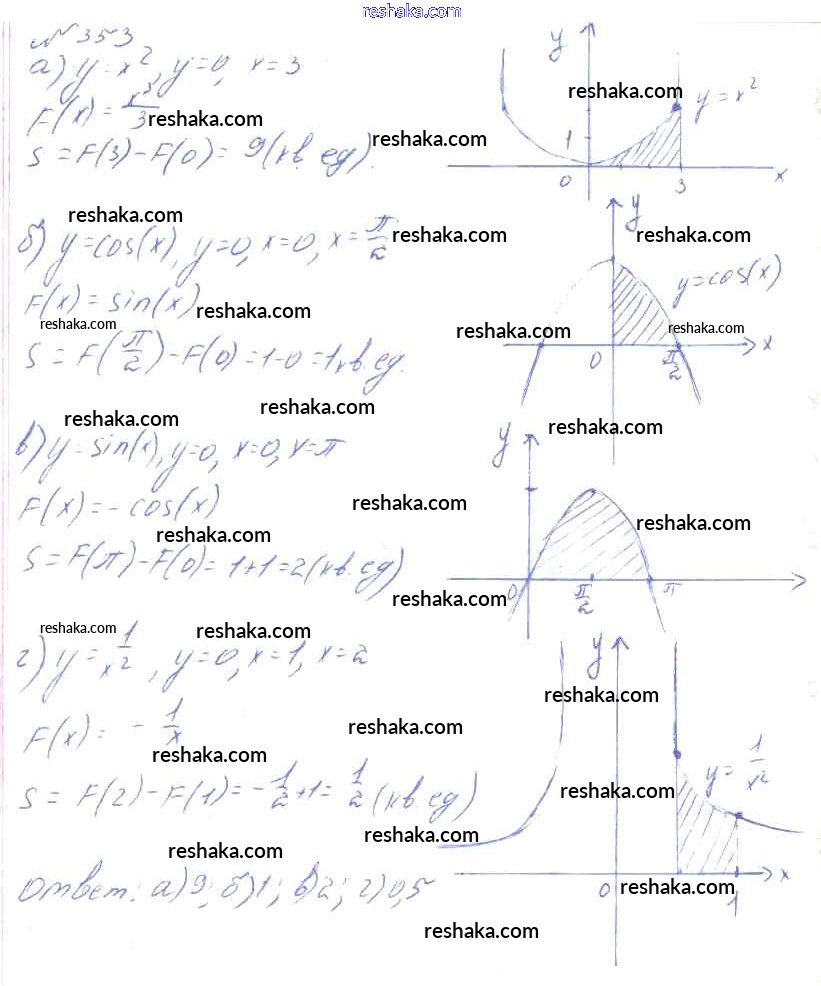 reshaka.com
№353
а) y = x², y=0, x=3
F(x) = x³/3
S = F(3) - F(0) = 9 (кв. ед).
y
reshaka.com
y = x²
reshaka.com
reshaka.com
1
0
3
x
reshaka.com
б) y=cos(x), y=0, x=0, x=π/2
F(x) = sin(x)
S = F(π/2) - F(0) = 1-0 = 1 кв. ед.
reshaka.com
reshaka.com
reshaka.com
reshaka.com
reshaka.com
y
reshaka.com
y=cos(x)
reshaka.com
reshaka.com
0
π/2
x
reshaka.com
в) y=sin(x), y=0, x=0, x=π
F(x) = -cos(x)
S = F(π) - F(0) = 1+1 = 2 (кв. ед)
reshaka.com
reshaka.com
y
reshaka.com
reshaka.com
reshaka.com
0
π/2
π
reshaka.com
reshaka.com
г) y = 1/x², y=0, x=1, x=2
F(x) = - 1/x
S = F(2) - F(1) = -1/2+1 = 1/2 (кв. ед)
reshaka.com
reshaka.com
reshaka.com
y
reshaka.com
reshaka.com
y = 1/x²
0
1
x
reshaka.com
Ответ: а) 9; б) 1; в) 2; г) 0,5
reshaka.com
reshaka.com